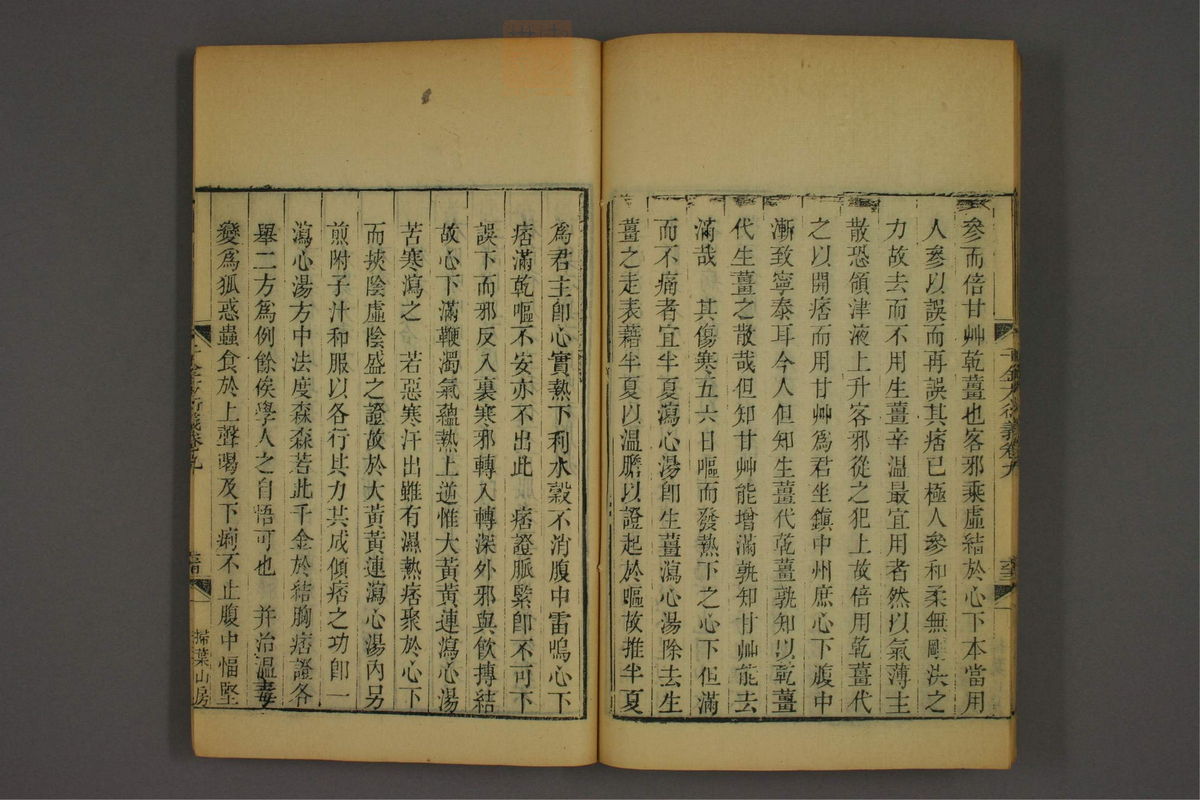 參而倍甘艸乾薑也客邪乘虛結於心下本當用
人參以誤而再誤其痞已極人參和柔無剛決之
力故去而不用生薑辛溫最宜用者然以氣薄主
散恐領津液上升客邪從之犯上故倍用乾薑代
之以開痞而用甘艸爲君坐鎭中州庶心下腹中
漸致寧泰耳今人但知生薑代乾薑孰知以乾薑
代生薑之散哉但知甘艸能增滿孰知甘艸能去
滿哉　其傷寒五六日嘔而發熱下之心下但滿
而不痛者宜半夏瀉心湯卽生薑瀉心湯除去生
薑之走表藉半夏以溫膽以證起於嘔故推半夏
千金方衍義卷九
爲君主卽心實熱下利水穀不消腹中雷鳴心下
痞滿乾嘔不安亦不出此　痞證脈緊卽不可下
誤下而邪反入裏寒邪轉入轉深外邪與飮摶結
故心下滿鞕濁氣蘊熱上逆惟大黃黃連瀉心湯
苦寒瀉之　若惡寒汗出雖有濕熱痞聚於心下
而挾陰虛陰盛之證故於大黃黃連瀉心湯內另
煎附子汁和服以各行其力共成傾痞之功卽一
瀉心湯方中法度森森若此千金於結胸痞證各
舉二方爲例餘俟學人之自悟可也　幷治溫毒
變爲狐惑蟲食於上聲喝及下痢不止腹中愊堅
千金方衍義卷九
掃葉山房